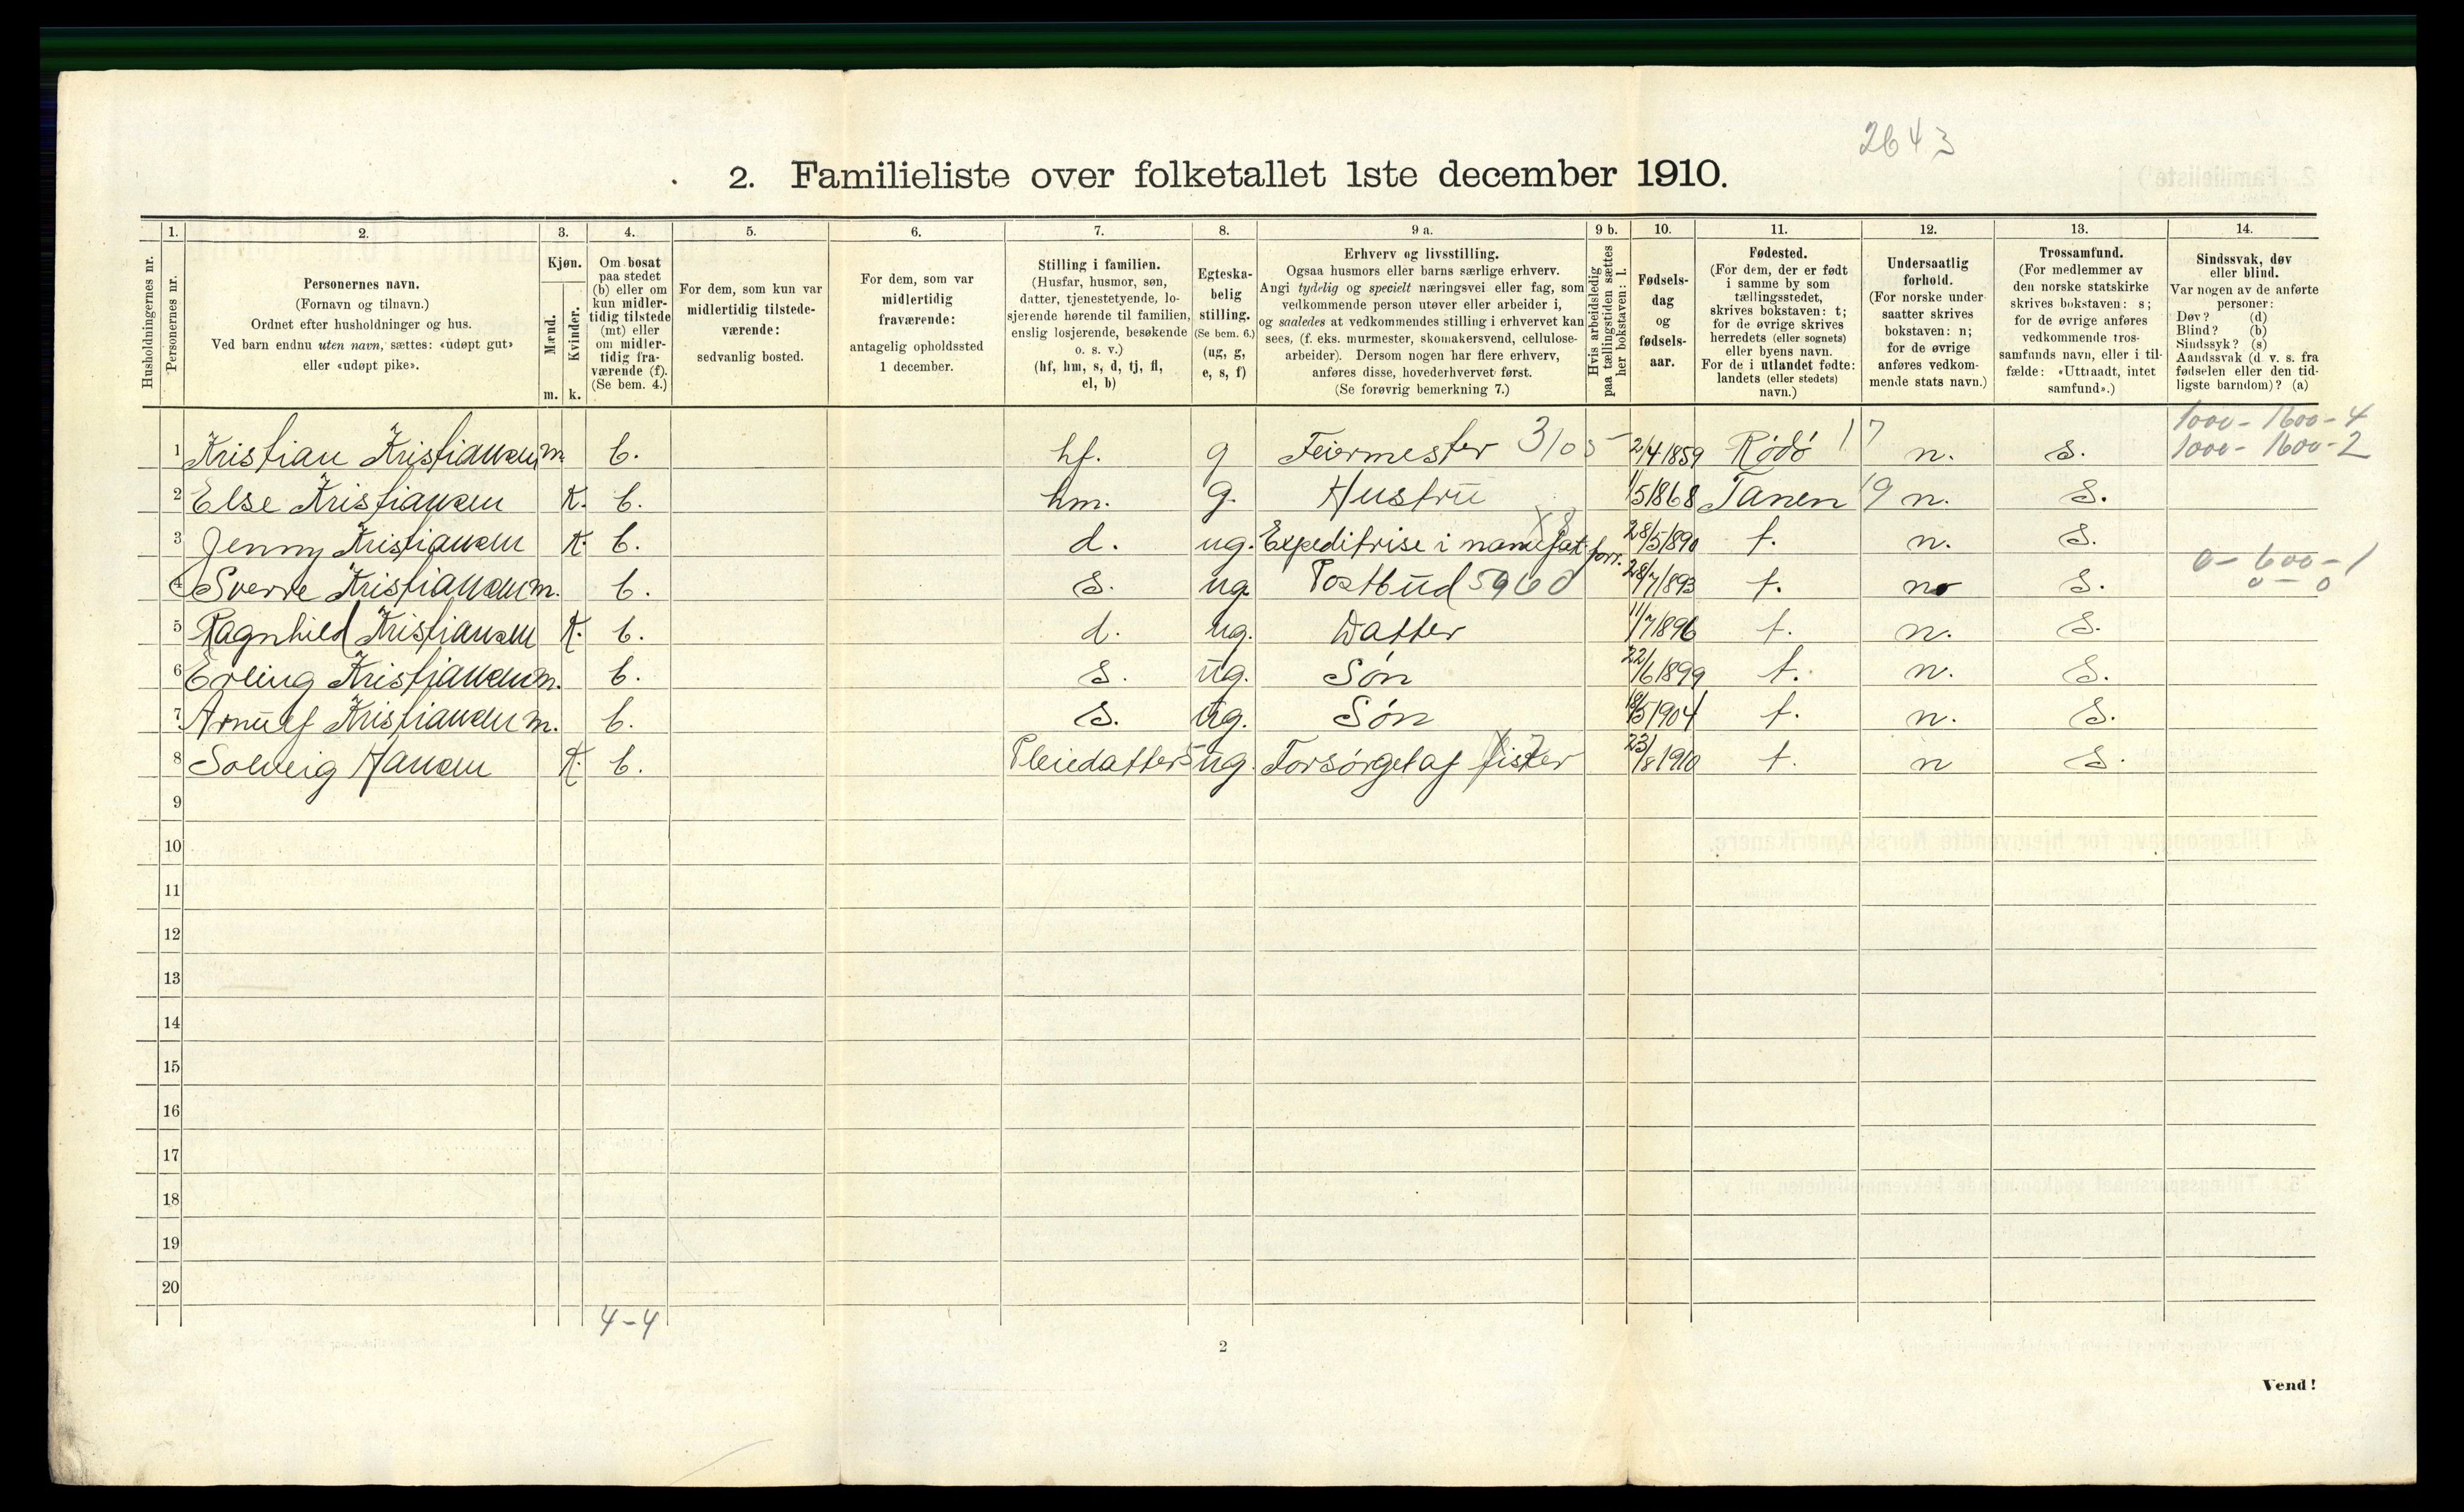 2643
2. Familieliste over folketallet 1ste december 1910.
1. 2. 3. 4. 5. 6. 7. 8. 9 a. 9 b. 10. 11. 12. 13. 14.
Husholdningernes nr.
Personernes nr.
Personernes navn.
(Fornavn og tilnavn.)
Ordnet efter husholdninger og hus.
Ved barn endnu uten navn, sættes: «udøpt gut»
eller «udøpt pike».
Kjøn.
Mænd.
Kvinder.
m. k.
Om bosat
paa stedet
(b) eller om
kun midler-
tidig tilstede
(mt) eller
om midler-
tidig fra-
værende (f).
(Se bem. 4.)
For dem, som kun var
midlertidig tilstede-
værende:
sedvanlig bosted.
For dem, som var
midlertidig
fraværende:
antagelig opholdssted
1 december.
Stilling i familien.
(Husfar, husmor, søn,
datter, tjenestetyende, lo-
sjerende hørende til familien,
enslig losjerende, besøkende
o. s. v.)
(hf, hm, s, d, tj, fl,
el, b)
Egteska-
belig
stilling.
(Se bem. 6.)
(ug, g,
e, s, f)
Erhverv og livsstilling.
Ogsaa husmors eller barns særlige erhverv.
Angi tydelig og specielt næringsvei eller fag, som
vedkommende person utøver eller arbeider i,
og saaledes at vedkommendes stilling i erhvervet kan
sees, (f. eks. murmester, skomakersvend, cellulose-
arbeider). Dersom nogen har flere erhverv,
anføres disse, hovederhvervet først.
(Se forøvrig bemerkning 7.)
Hvis arbeidsledig
paa tællingstiden sættes
her bokstaven: l.
Fødsels-
dag
og
fødsels-
aar.
Fødested.
(For dem, der er født
i samme by som
tællingsstedet,
skrives bokstaven: t;
for de øvrige skrives
herredets (eller sognets)
eller byens navn.
For de i utlandet fødte:
landets (eller stedets)
navn.)
Undersaatlig
forhold.
(For norske under-
saatter skrives
bokstaven: n;
for de øvrige
anføres vedkom-
mende stats navn.)
Trossamfund.
(For medlemmer av
den norske statskirke
skrives bokstaven: s;
for de øvrige anføres
vedkommende tros-
samfunds navn, eller i til-
fælde: «Uttraadt, intet
samfund».)
Sindssvak, døv
eller blind.
Var nogen av de anførte
personer:
Døv? (d)
Blind? (b)
Sindssyk? (s)
Aandssvak (d. v. s. fra
fødselen eller den tid-
ligste barndom)? (a)
1000 - 1600 - 4
1 Kristian Kristiansen m. b. hf. g Feiermester 3105 2/4 1859 Rødø 17 n. s. 1000 - 1600 - 2
2 Else Kristiansen K. b. hm. g. Hustru 1/5 1868 Tanen 19 n. s.
3 Jenny Kristiansen K. b. d. ug. Expeditrise i manufat. forr. 28/5 1890 t. n. s.
0 - 600 - 1
4 Sverre Kristiansen m. b. s. ug. Postbud 5960 28/7 1893 t. n s. 0 - 0
5 Ragnhild Kristiansen K. b. d. ug. Datter 11/7 1896 t. n. s.
6 Erling Kristiansen m. b. s. ug. Søn 22/6 1899 t. n. s.
7 Arnulf Kristiansen m. b. s. ug. Søn 18/5 1904 t. n. s.
8 Solveig Hansen K. b. Pleiedatter ug. Forsørget af fister 23/8 1910 t. n s.
9
10
11
12
13
14
15
16
17
18
19
20
4 - 4
2
Vend!